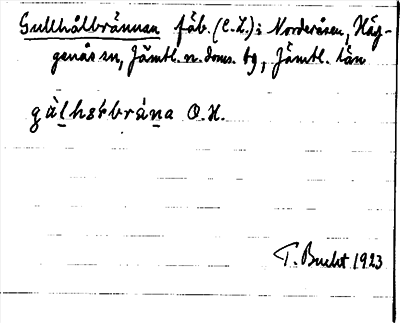 Gullhålbrännan fäb. (C.L.): Norderåsen, Häg-
genås sn, Jämtl. n. doms. bg, Jämtl. län
O.H.
T. Bucht 1923